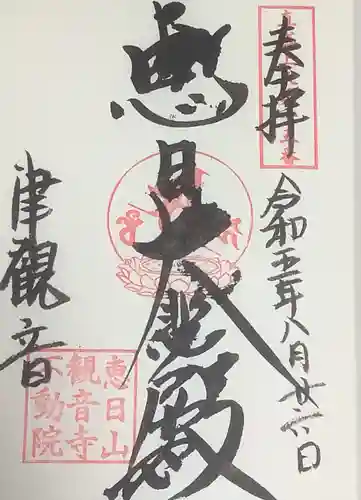 奉拝
令和五年八月廿六日
恵日大聖殿
津観音
恵日山
観音寺
不動院